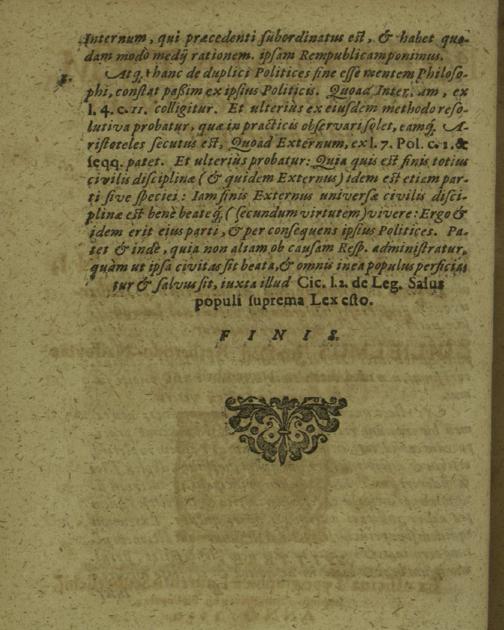 Internum, qui præcedenti subordinatus est, & habet quo-
dam modò medij rationem. ipsam Rempublicam ponimus.
Atq; hanc de duplici Politices fine esse mentem Philoso-
phi, constat paßim ex ipsius Politicis. Quoad Inter. am, ex
l. 4. c. 11. colligitur. Et ulterius ex eiusdem methodo reso-
lutiva probatur, quæ in practicis observari solet, eamq́; A-
ristoteles secutus est, Quoad Externum, ex l. 7. Pol. c. 1. &
seqq. patet. Et ulterius probatur: Quia quis est finis totius
civilis disciplinæ (& quidem Externus) idem est etiam par-
ti sive species: Iam finis Externus universæ civilis disci-
plinæ est benè beateq́; (secundum virtutem) vivere: Ergo &
idem erit eius parti, & per consequens ipsius Politices. Pa-
tet & indè, quia non aliam ob causam Resp. administratur,
quàm ut ipsa civitas sit beata, & omnis in ea populus perficia-
tur & salvus sit, iuxta illud Cic. l. 2. de Leg. Salus
populi suprema Lex esto.
FINIS.